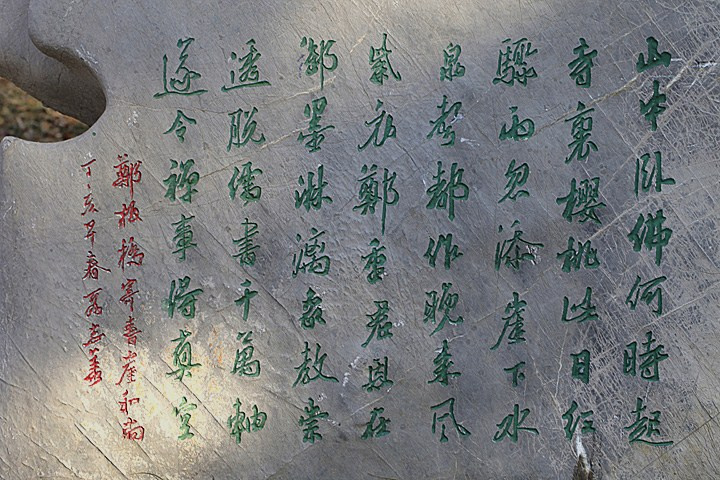 山中卧佛何時起
寺裏櫻桃此日红
驟雨忽添崖下水
泉聲都作晚来风
紫衣鄭重君恩在
御墨淋漓象教崇
透脱儒書千萬軸
遂令禪事得真空
鄭板橋寄青崖和尚
丁亥早春